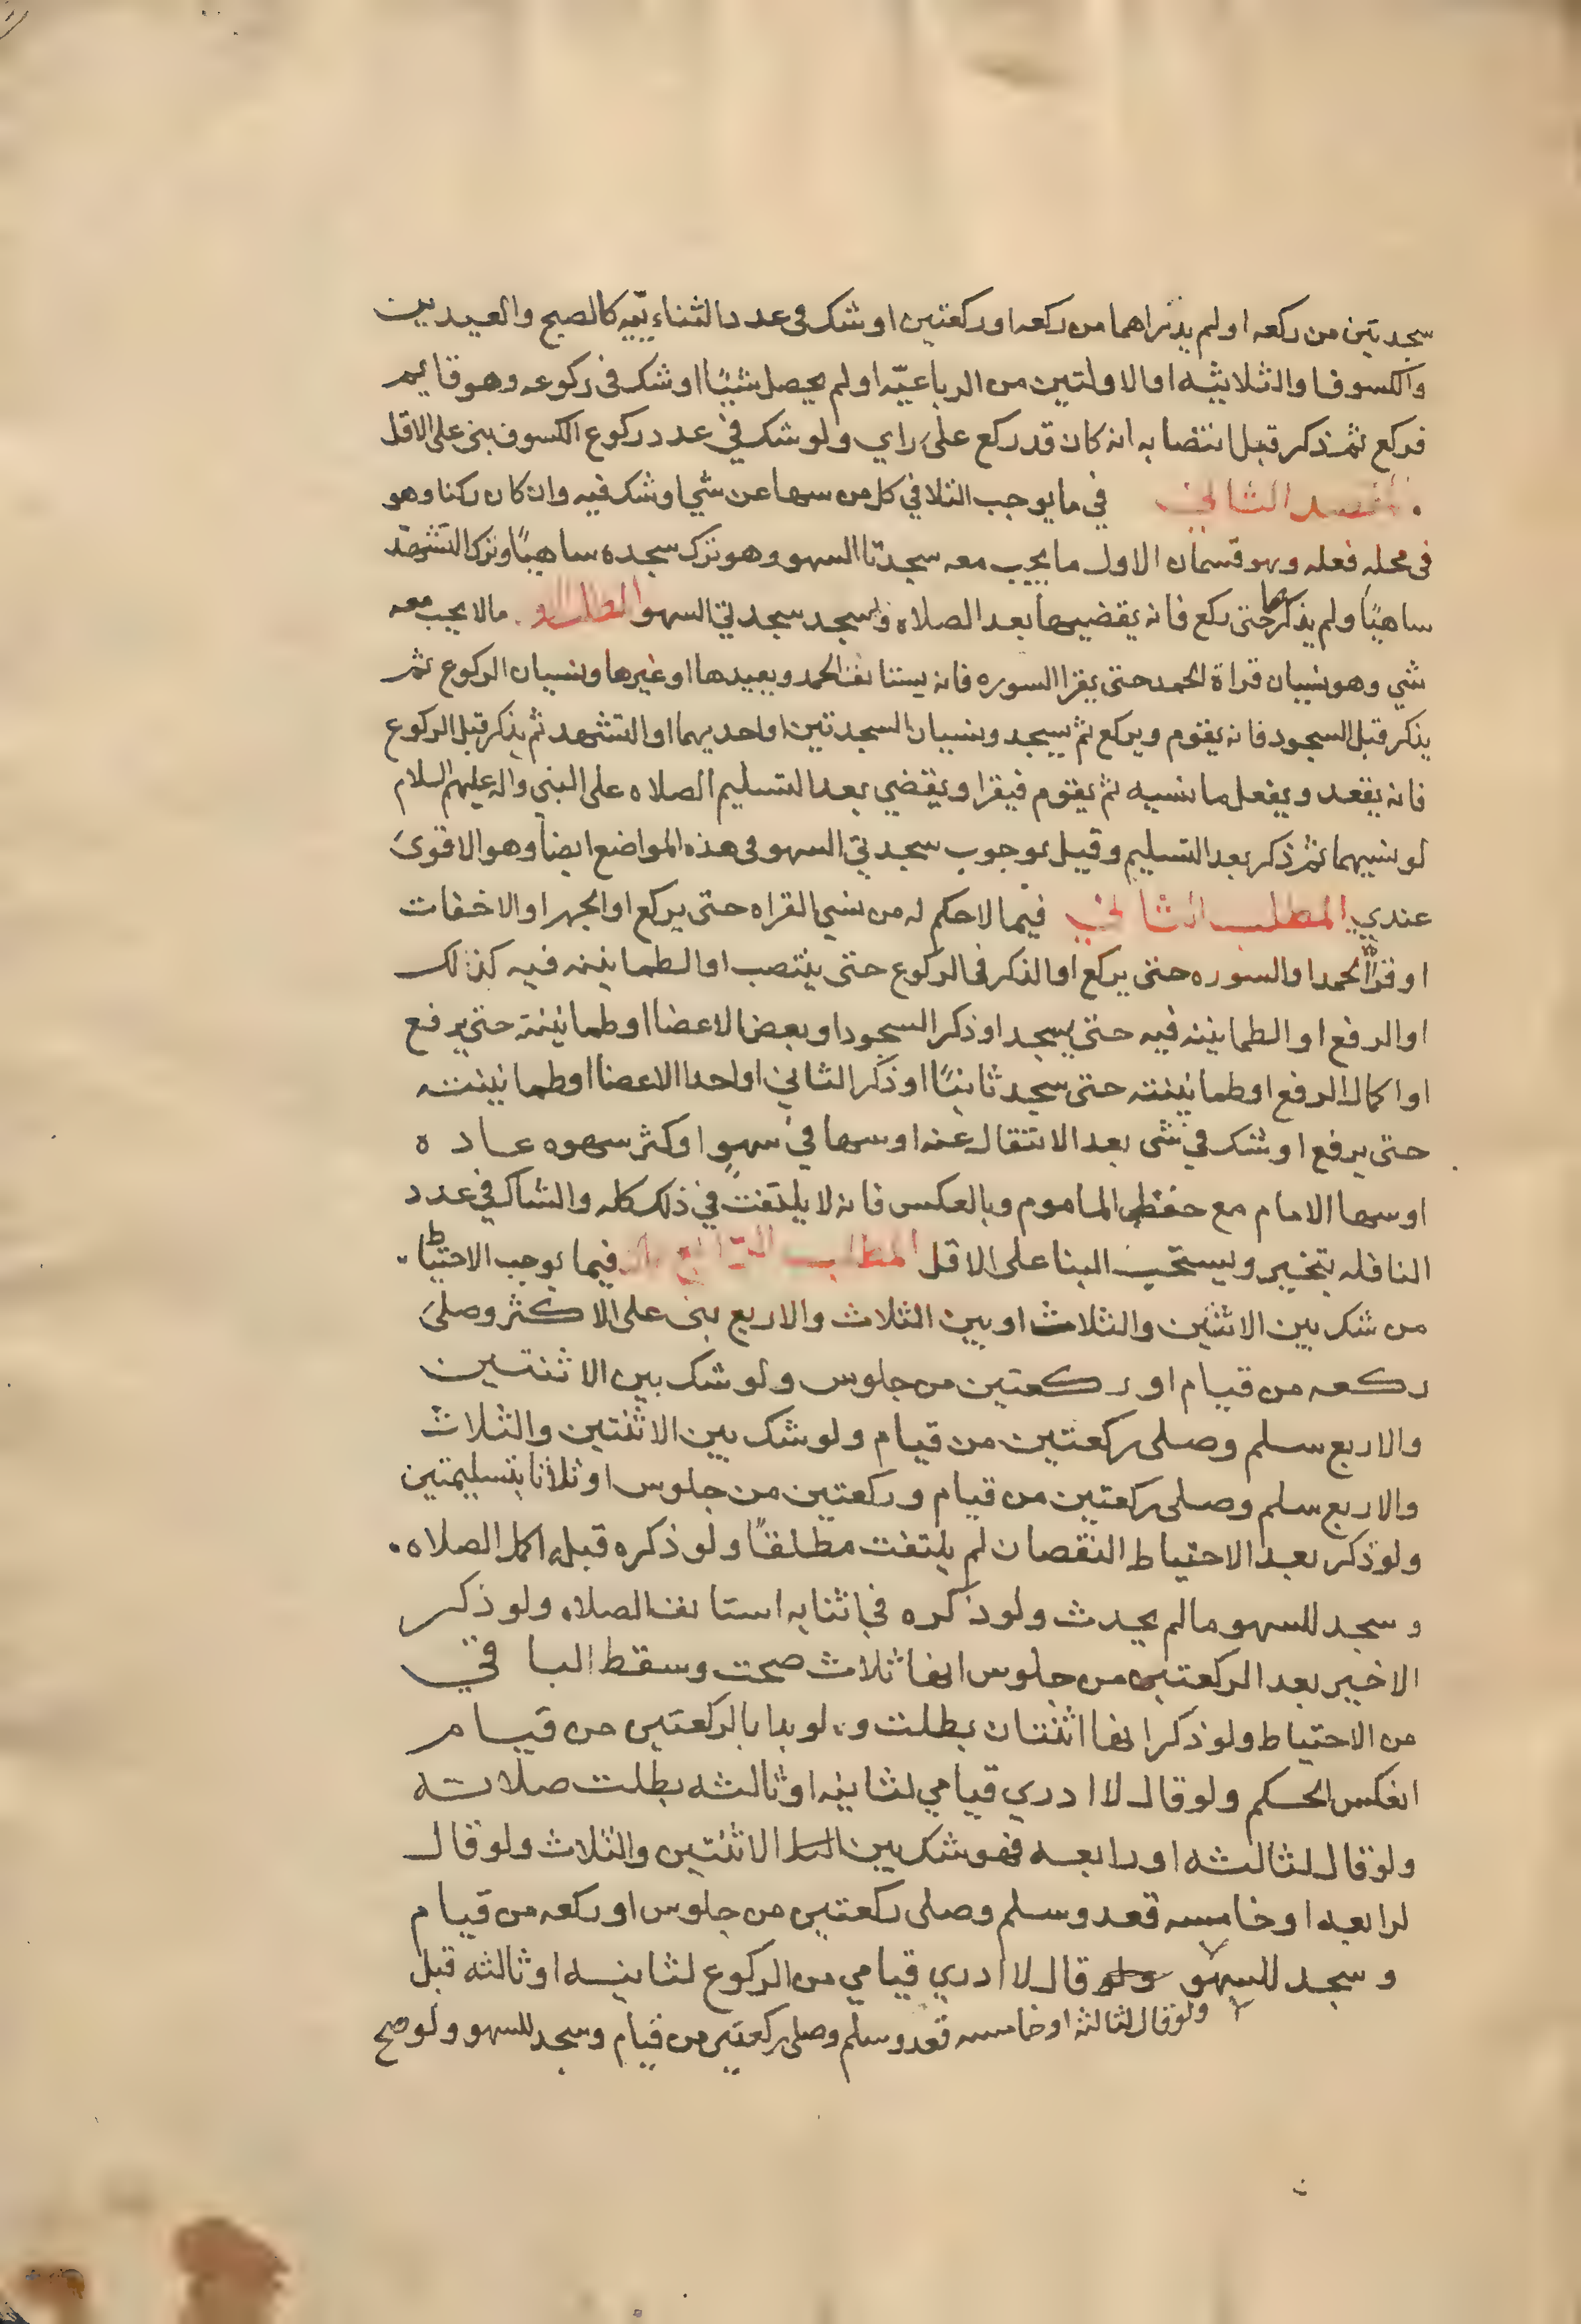 سجدتين من ركعه او لم يدر اهما من ركعه او ركعتين او شك في عدد الثناءييّه كالصبح والعيدين
والكسوف او الثلاثيه او الاولتين من الرباعيّه او لم يحصل شيئًا او شك في ركوعه وهو قايم
فركع ثم ذكر قبل انتصابه انه كان قد ركع على راي ولو شك في عدد ركوع الكسوف بنى على الاقل
المقصد الثاني في ما يوجب التلافي كل من سها عن شي او شك فيه وان كان ركنا وهو
في محله فعله وهو قسمان الاول ما يجب معه سجدتا السهو وهو ترك سجده ساهيًا وترك التشهد
ساهيًا ولم يذكرهما حتى ركع فانه يقضيهما بعد الصلاه ويسجد سجدتي السهو مالا يجب معه
شي وهو نسيان قراة الحمد حتى يقرا السوره فانه يستانف الحمد ويعيدها او غيرها ونسيان الركوع ثم
يذكر قبل السجود فانه يقوم ويركع ثم يسجد ونسيان السجدتين او احديهما او التشهد ثم يذكر قبل الركوع
فانه يقعد ويفعل ما نسيه ثم يقوم فيقرا ويقضي بعد التسليم الصلاه على النبي واله عليهم السلام
لو نسيهما ثم ذكر بعد التسليم وقيل بوجوب سجدتي السهو في هذه المواضع ايضاً وهو الاقوى
عندي المطلب الثالث فيما لا حكم له من نسي القراه حتى يركع او الجهر او الاخفات
او قراة الحمد او السوره حتى يركع او الذكر في الركوع حتى ينتصب او الطمانينه فيه كذلك
او الرفع او الطمانينه فيه حتى يسجد او ذكر السجود او بعض الاعضا او طمانينته حتى يرفع
او اكمال الرفع او طمانينته حتى سجد ثانيًا او ذكر الثاني او احد الاعضا او طمانينته
حتى يرفع او شك في شى بعد الانتقال عنه او سها في سهوٍ او كثر سهوه عاده
او سها الامام مع حفظ الماموم وبالعكس فانه لا يلتفت في ذلك كله والشاك في عدد
النافله يتخير ويستحب البنا على الاقل المطلب الرابع فيما يوجب الاحتياط
من شك بين الاثنين والثلاث او بين الثلاث والاربع بنى على الاكثر وصلى
ركعه من قيام او ركعتين من جلوس ولو شك بين الاثنتين
والاربع سلم وصلى ركعتين من قيام ولو شك بين الاثنتين والثلاث
والاربع سلم وصلى ركعتين من قيام وركعتين من جلوس او ثلاثا بتسليمتين
ولو ذكر بعد الاحتياط النقصان لم يلتفت مطلقاً ولو ذكره قبله اكمل الصلاه
وسجد للسهو مالم يحدث ولو ذكره في اثنايه استانف الصلاه ولو ذكر
الاخير بعد الركعتين من جلوس انها ثلاث صحت وسقط الباقي
من الاحتياط ولو ذكر انها اثنتان بطلت ولو بدا بالركعتين من قيام
انعكس الحكم ولو قال لا ادري قيامي لثانيه او ثالثه بطلت صلاته
ولو قال لثالثه او رابعه فهو شك بين الاثنتين والثلاث ولو قال
لرابعه او خامسه قعد وسلم وصلى ركعتين من جلوس او ركعه من قيام
وسجد للسهو ولو قال لا ادري قيامي من الركوع لثانيه او ثالثه قبل
ولو قال لثالثه او خامسه قعد وسلم وصلى ركعتين من قيام وسجد للسهو ولو صح